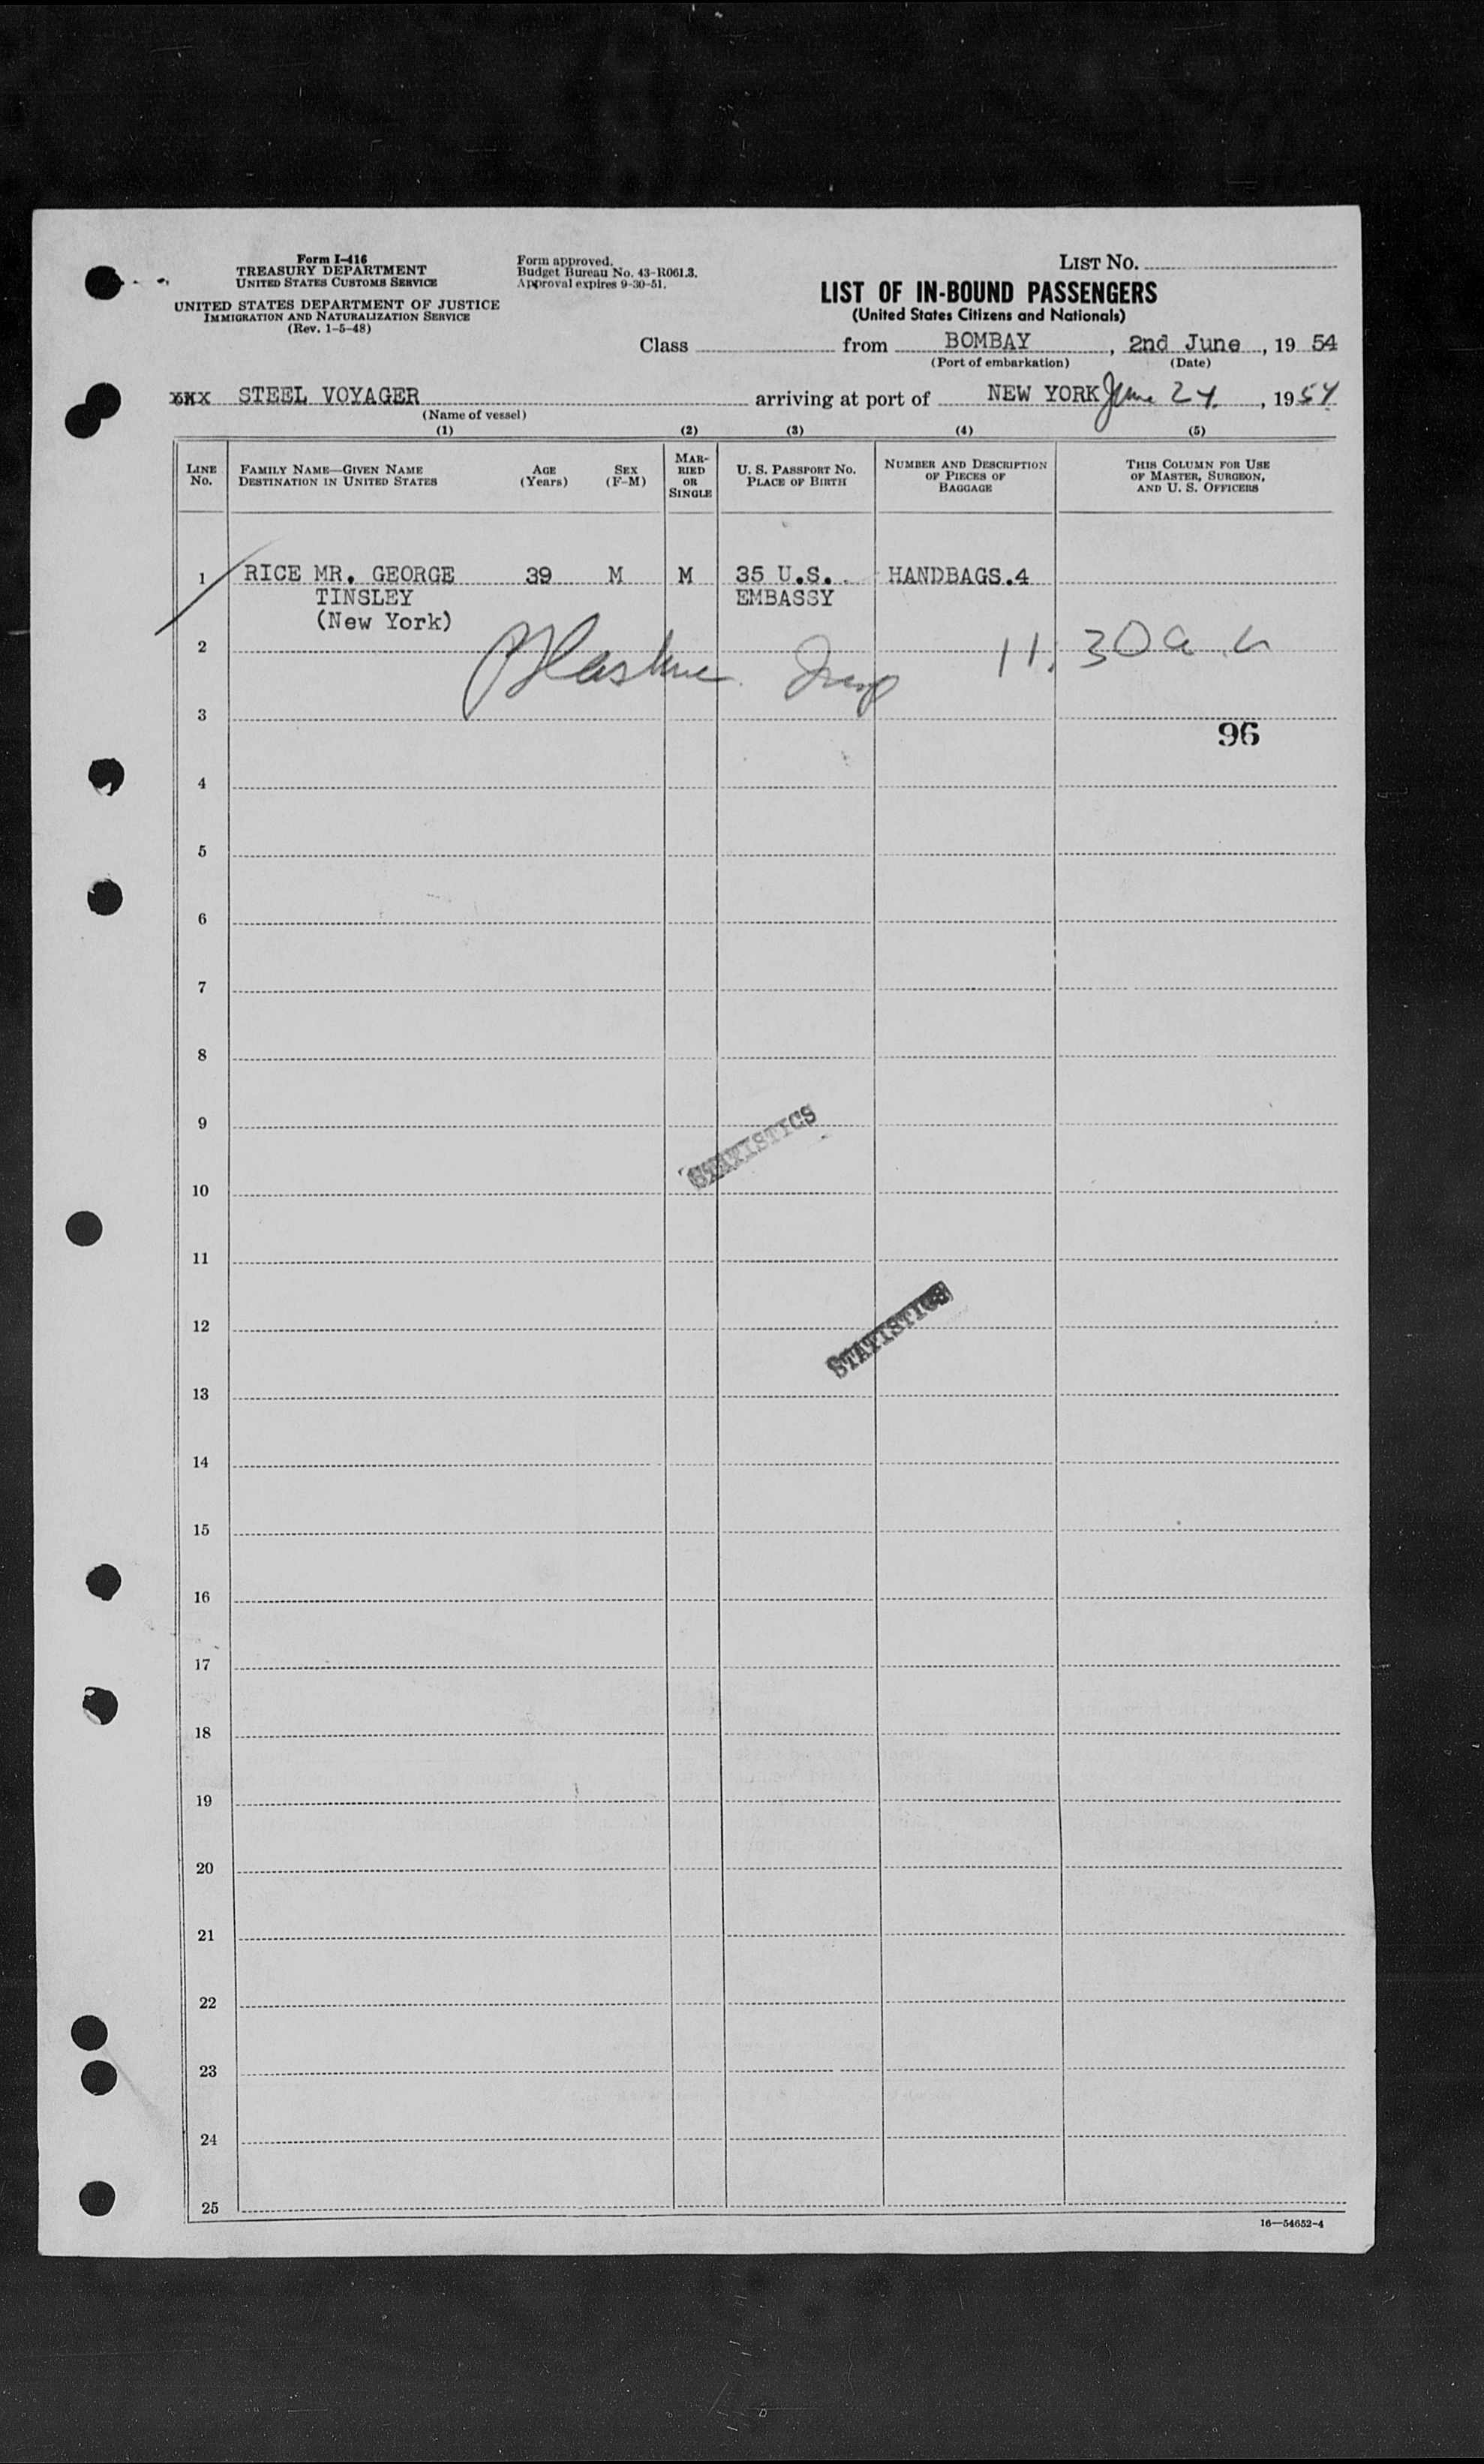 Form I-416
TREASURY DEPARTMENT
UNITED STATES CUSTOMS SERVICE
UNITED STATES DEPARTMENT OF JUSTICE
IMMIGRATION AND NATURALIZATION SERVICE
(Rev. 1-5-48)
Form approved.
Budget Bureau No. 43-R061.3.
Approval expires 9-30-51.
LIST NO.
LIST OF IN-BOUND PASSENGERS
(United States Citizens and Nationals)
Class from BOMBAY, 2nd June, 19 54
(Port of embarkation) (Date)
STEEL VOYAGER arriving at port of NEW YORK June 24, 1954
(Name of vessel)
(1) (2) (3) (4) (5)
LINE NO.
FAMILY NAME—GIVEN NAME
DESTINATION IN UNITED STATES
AGE (Years)
SEX (F-M)
MARRIED OR SINGLE
U. S. PASSPORT NO.
PLACE OF BIRTH
NUMBER AND DESCRIPTION
OF PIECES OF
BAGGAGE
THIS COLUMN FOR USE
OF MASTER, SURGEON,
AND U. S. OFFICERS
1 RICE MR. GEORGE 39 M M 35 U.S. HANDBAGS.4
TINSLEY EMBASSY
(New York)
2 11:30 a.
3
96
4
5
6
7
8
9
STATISTICS
10
11
12
STATISTICS
13
14
15
16
17
18
19
20
21
22
23
24
25
16—54652-4